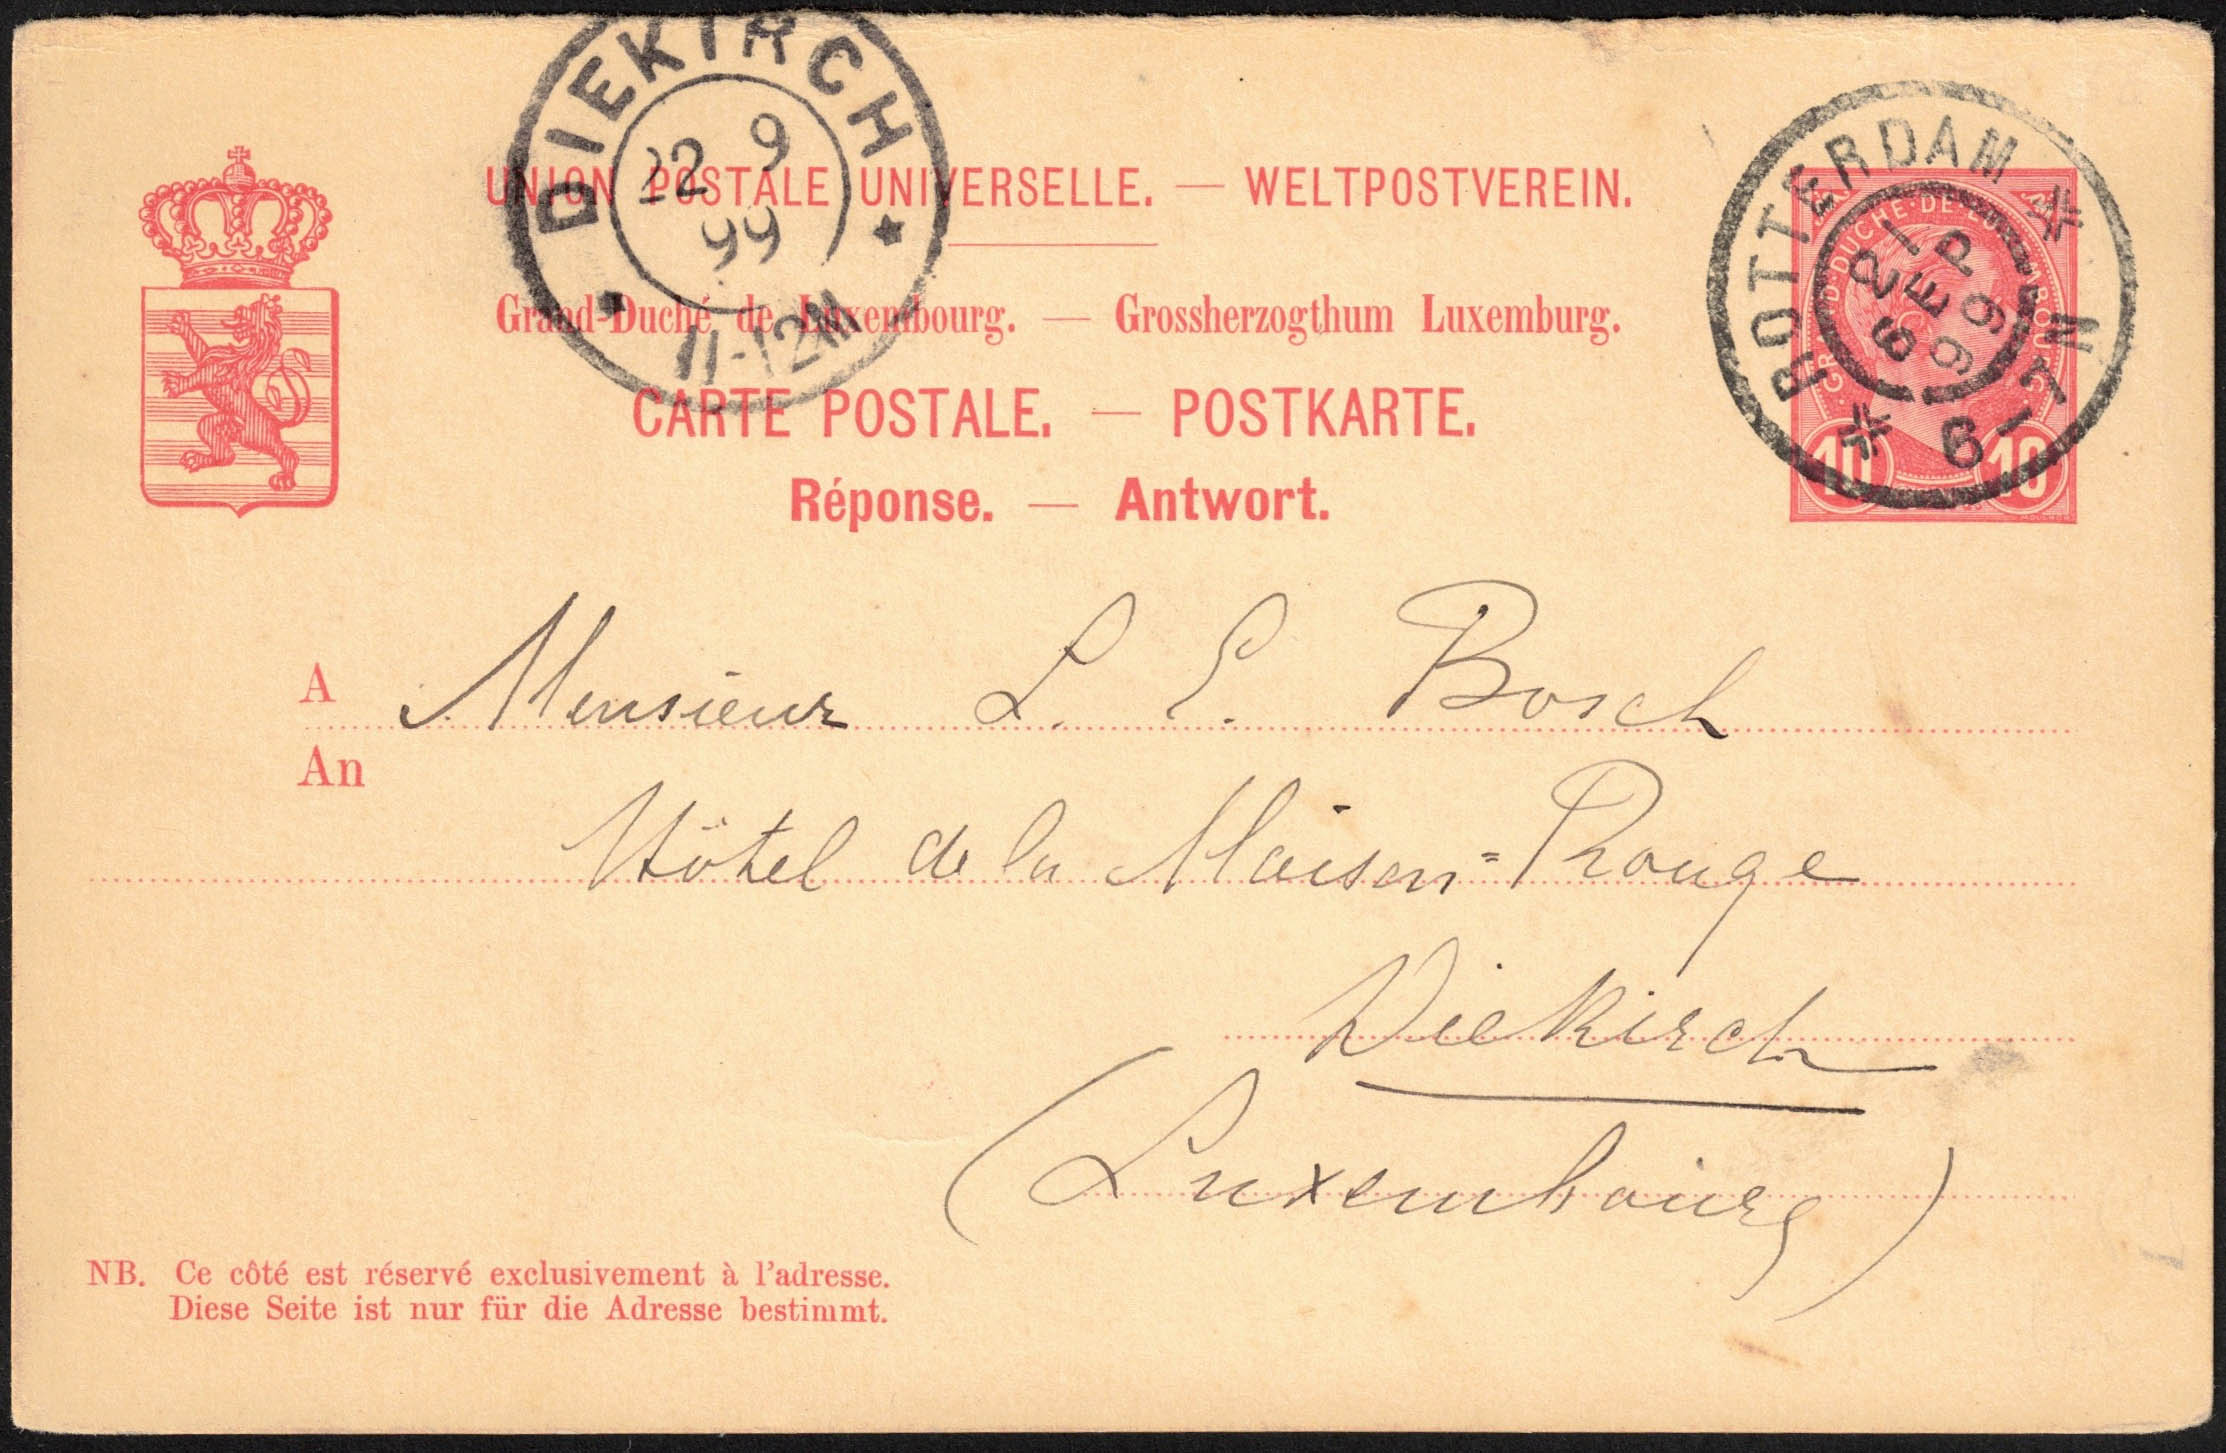 DIEKIRCH
22 9
99
11-12M
UNION POSTALE UNIVERSELLE. — WELTPOSTVEREIN.
Grand-Duché de Luxembourg. — Grossherzogthum Luxemburg.
CARTE POSTALE. — POSTKARTE.
Réponse. — Antwort.
ROTTERDAM
21
SEP
99
GRAND DUCHÉ DE LUXEMBOURG
10 10
A Monsieur L. E. Bosch
An
Hôtel de la Maison=Rouge
Diekirch
(Luxembourg)
NB. Ce côté est réservé exclusivement à l'adresse.
Diese Seite ist nur für die Adresse bestimmt.